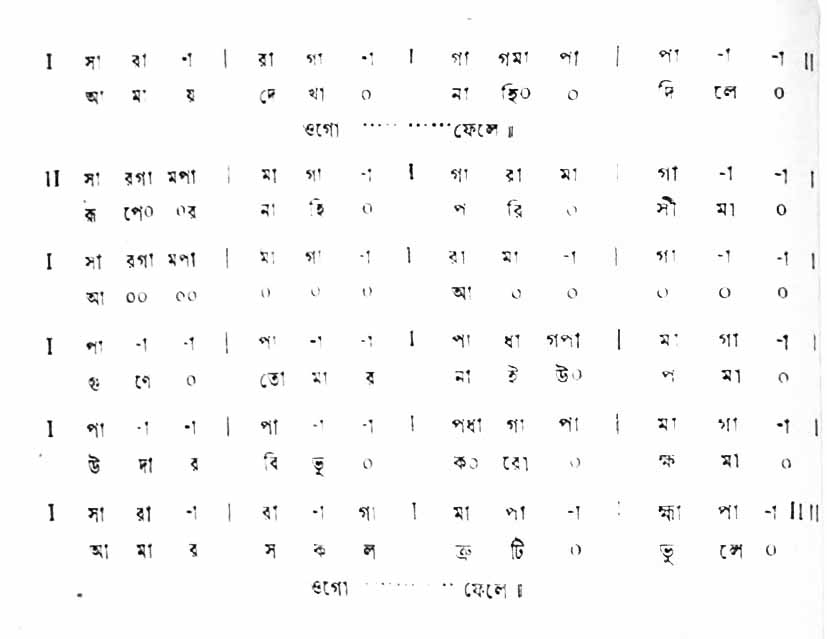 I সা রা -া | রা গা -া I গা গমা পা | পা -া -া II
আ মা য় দে খা ০ না হি০ ০ দি লে ০
ওগো ··············· ফেলে ॥
II সা রগা মপা | মা গা -া I গা রা মা | গা -া -া |
রূ পে০ ০র না হি ০ প রি ০ সী মা ০
I সা রগা মপা | মা গা -া | রা মা -া | গা -া -া |
আ ০০ ০০ ০ ০ ০ আ ০ ০ ০ ০ ০
I পা -া -া | পা -া -া I পা ধা গপা | মা গা -া |
গু ণে ০ তো মা র না ই উ০ প মা ০
I পা -া -া | পা -া -া | পধা গা পা | মা গা -া |
উ দা র বি ভূ ০ ক০ রো ০ ক্ষ মা ০
I সা রা -া | রা -া গা | মা পা -া | হ্মা পা -া II II
আ মা র স ক ল ত্রু টি ০ ভু লে ০
ওগো ··············· ফেলে ॥